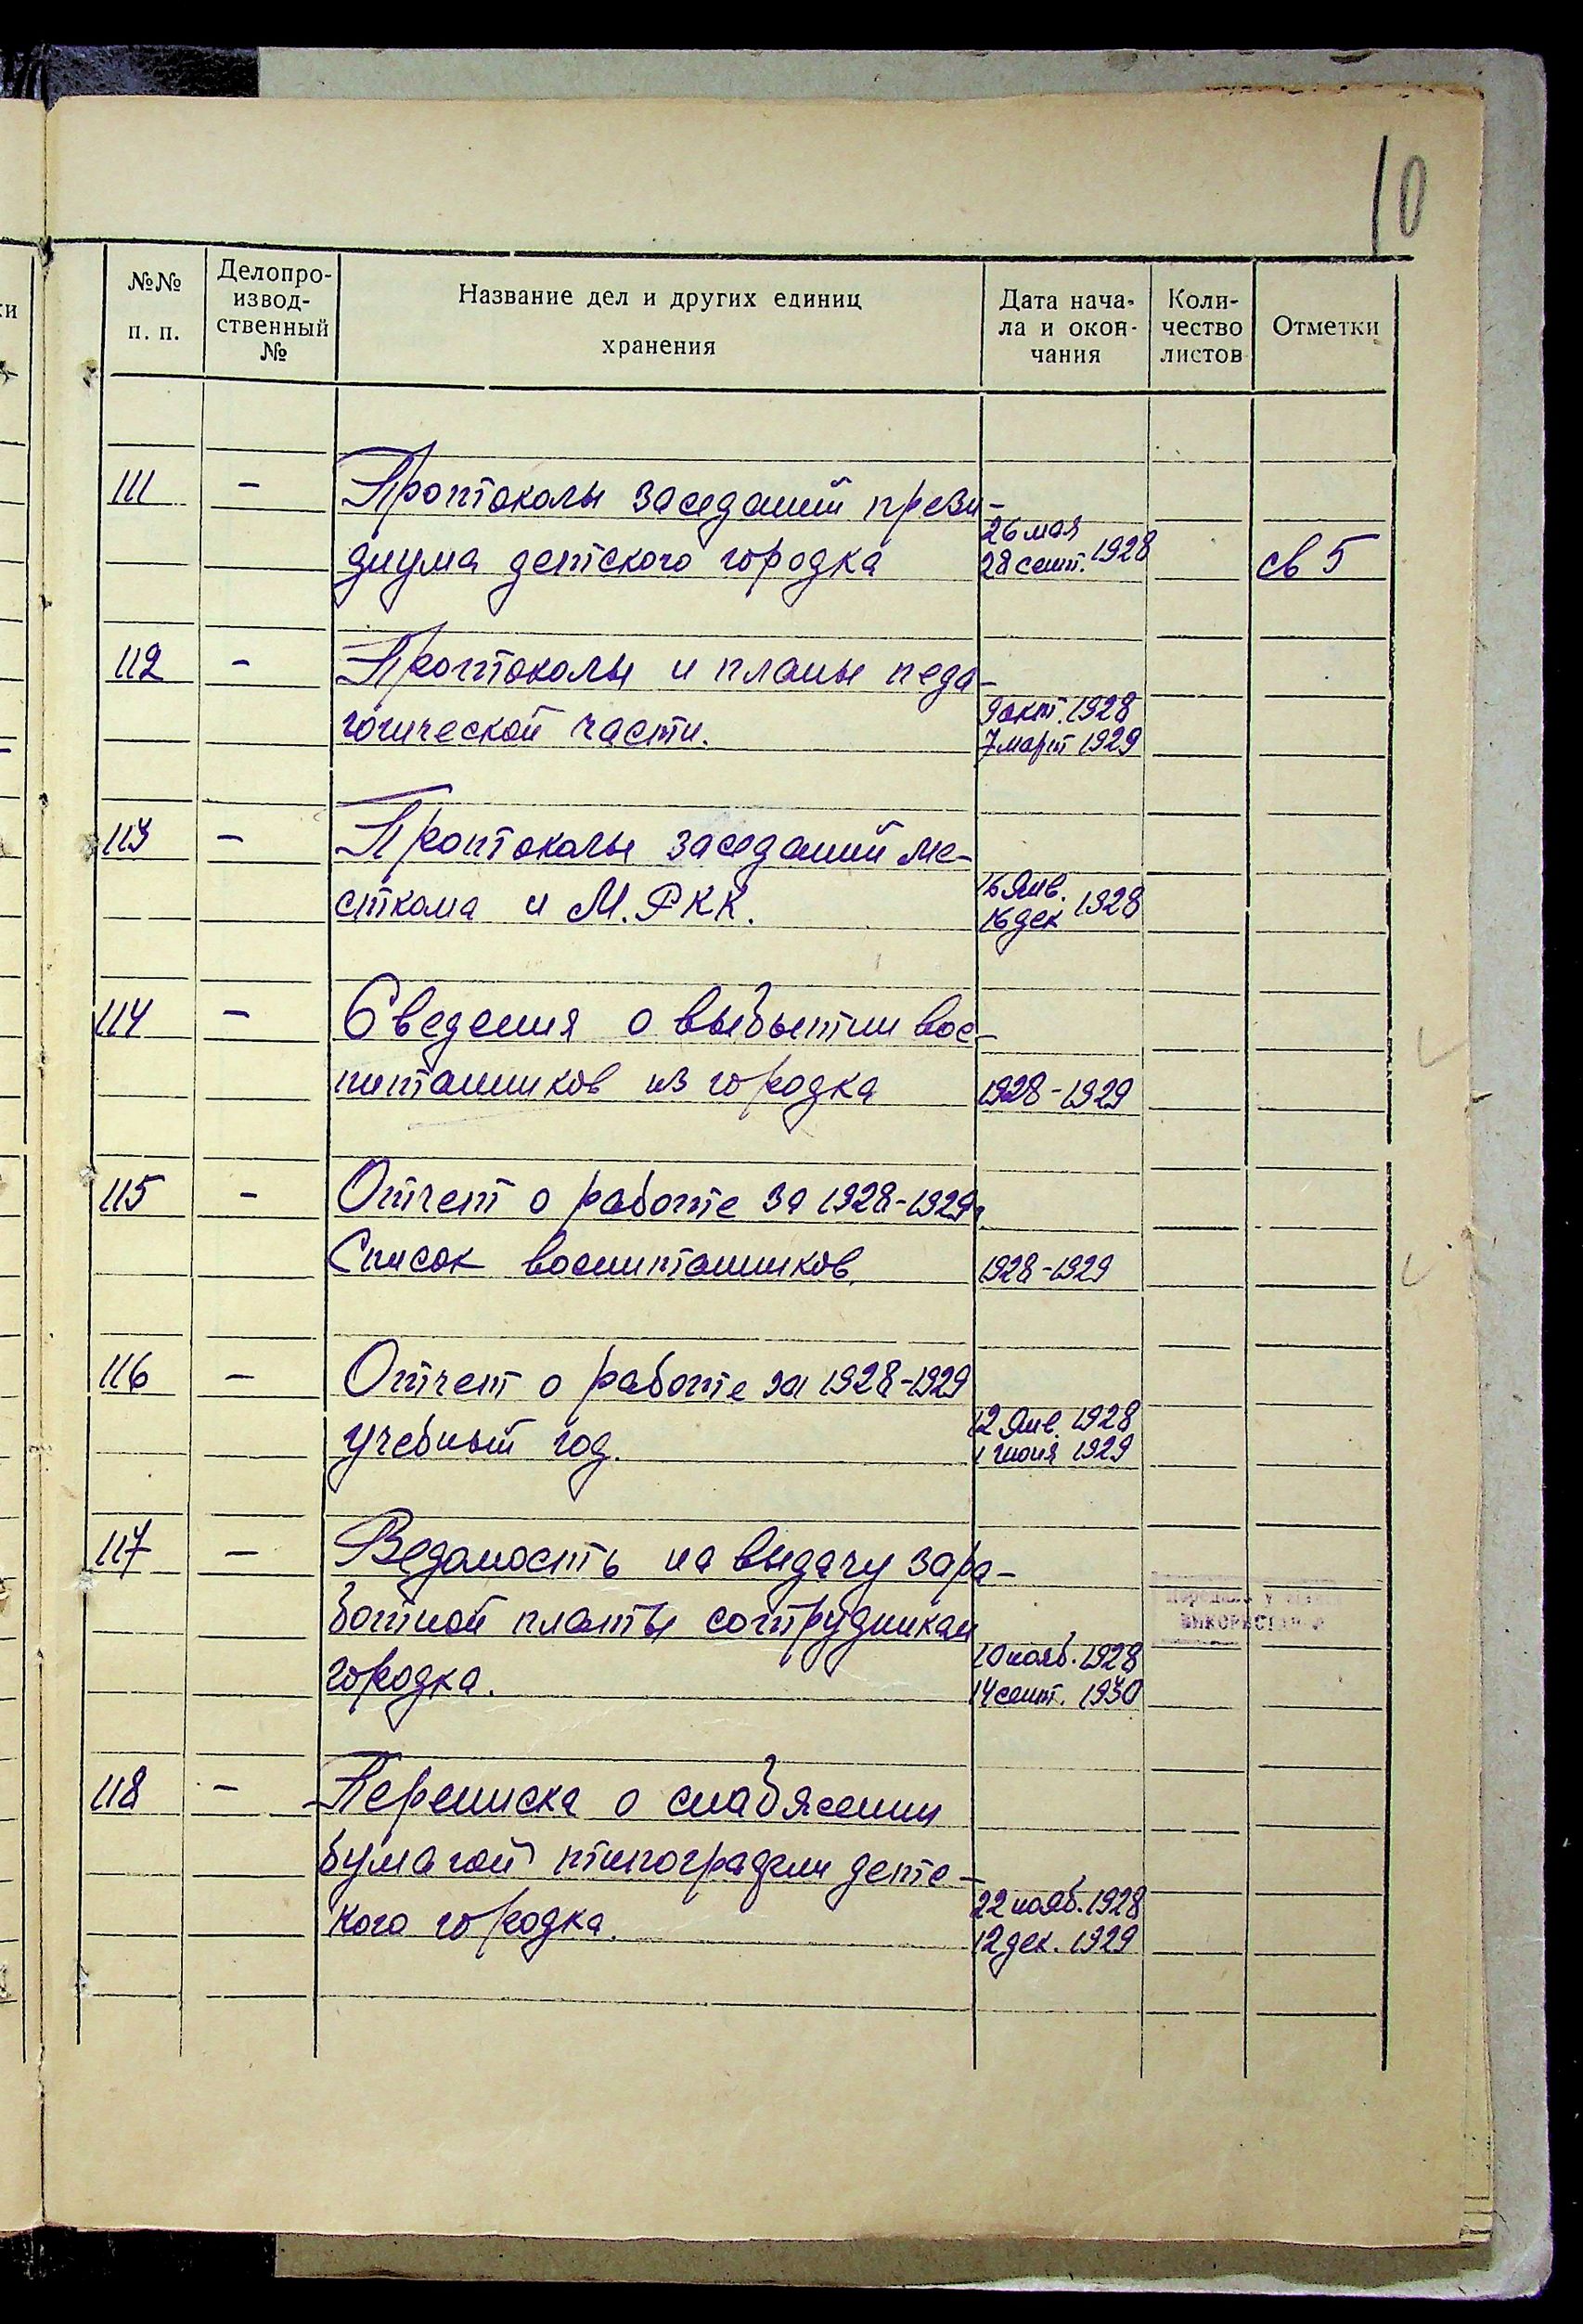 10
№№ п. п.
Делопро-
извод-
ственный
№
Название дел и других единиц
хранения
Дата нача-
ла и окон-
чания
Коли-
чество
листов
Отметки
111 – Протоколы заседаний прези-
диума детского городка
26 мая
28 сент. 1928
св 5
112 – Протоколы и планы педа-
гогической части.
9 окт. 1928
7 март 1929
113 – Протоколы заседаний ме-
сткома и М. РКК.
16 Янв.
16 дек 1928
114 – Сведения о выбытии вос-
питанников из городка 1928-1929
115 – Отчет о работе за 1928-1929г.
Список воспитанников 1928-1929
116 – Отчет о работе за 1928-1929
учебный год.
12 Янв. 1928
1 июня 1929
117 – Ведомость на выдачу зара-
ботной платы сотрудникам
городка.
10 нояб. 1928
14 сент. 1930
118 – Переписка о снабжении
бумагой типографии детс-
кого городка.
22 нояб. 1928
12 дек. 1929